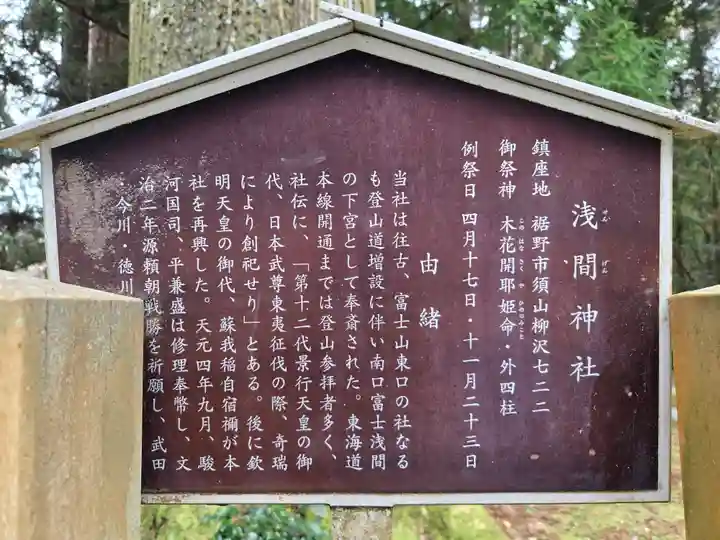 浅間神社
せん げん
鎮座地 裾野市須山柳沢七二二
御祭神 木花開耶姫命・外四柱
この はな さく や ひめのみこと
例祭日 四月十七日・十一月二十三日
由緒
当社は往古、富士山東口の社なる
も登山道増設に伴い南口富士浅間
の下宮として奉斎された。東海道
本線開通までは登山参拝者多く、
社伝に、「第十二代景行天皇の御
代、日本武尊東夷征伐の際、奇瑞
により創祀せり」とある。後に欽
明天皇の御代、蘇我稲自宿禰が本
社を再興した。天元四年九月、駿
河国司、平兼盛は修理奉幣し、文
治二年源頼朝戦勝を祈願し、武田
・今川・徳川